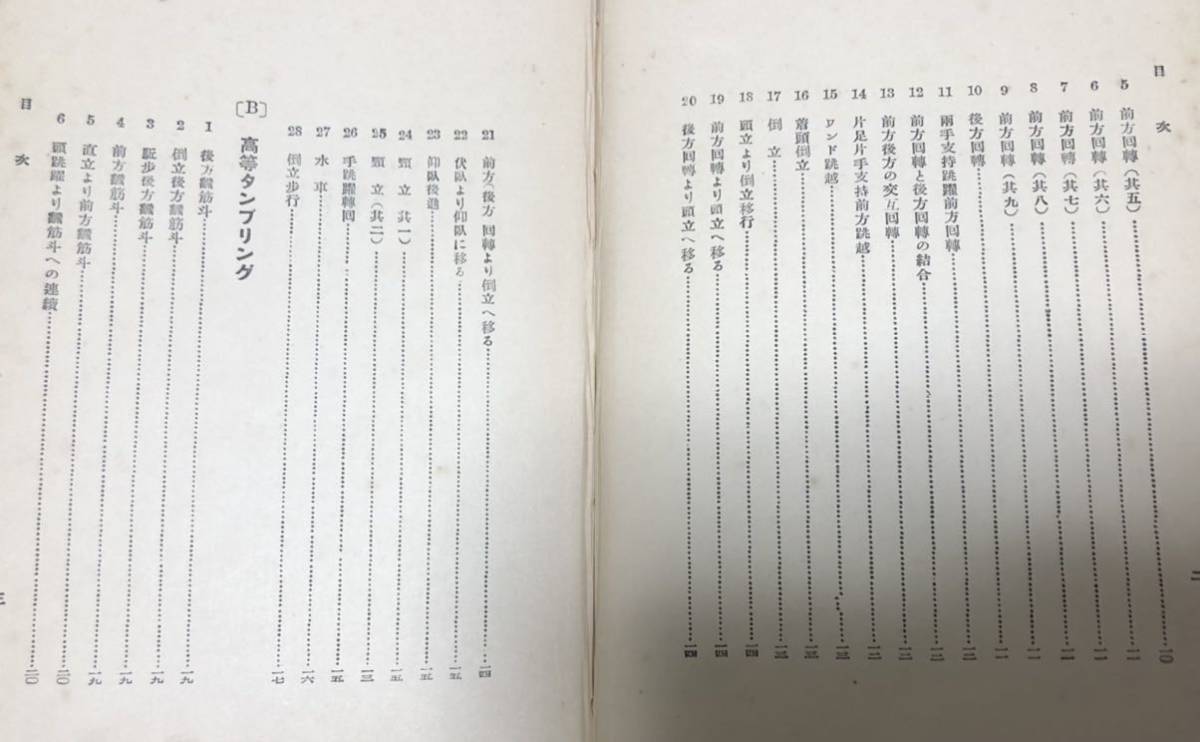 目次
5 前方回轉（其五）………一〇
6 前方回轉（其六）………一一
7 前方回轉（其七）………一一
8 前方回轉（其八）………一一
9 前方回轉（其九）………一二
10 後方回轉………一二
11 兩手支持跳躍前方回轉………一二
12 前方回轉と後方回轉の結合………一二
13 前方後方の交互回轉………一三
14 片足片手支持前方跳越………一三
15 ワンド跳越………一三
16 着頭倒立………一三
17 倒立………一三
18 頭立より倒立移行………一四
19 前方回轉より頭立へ移る………一四
20 後方回轉より頭立へ移る………一四
二
21 前方（後方）回轉より倒立へ移る………一四
22 伏臥より仰臥に移る………一五
23 仰臥後進………一五
24 頸立（其一）………一五
25 頸立（其二）………一三
26 手跳躍轉回………一五
27 水車………一六
28 倒立步行………一七
〔B〕 高等タンブリング
1 後方飜筋斗………一九
2 倒立後方飜筋斗………一九
3 駈步後方飜筋斗………一九
4 前方飜筋斗………一九
5 直立より前方飜筋斗………一九
6 頭跳躍より飜筋斗への連續………二〇
目次
三